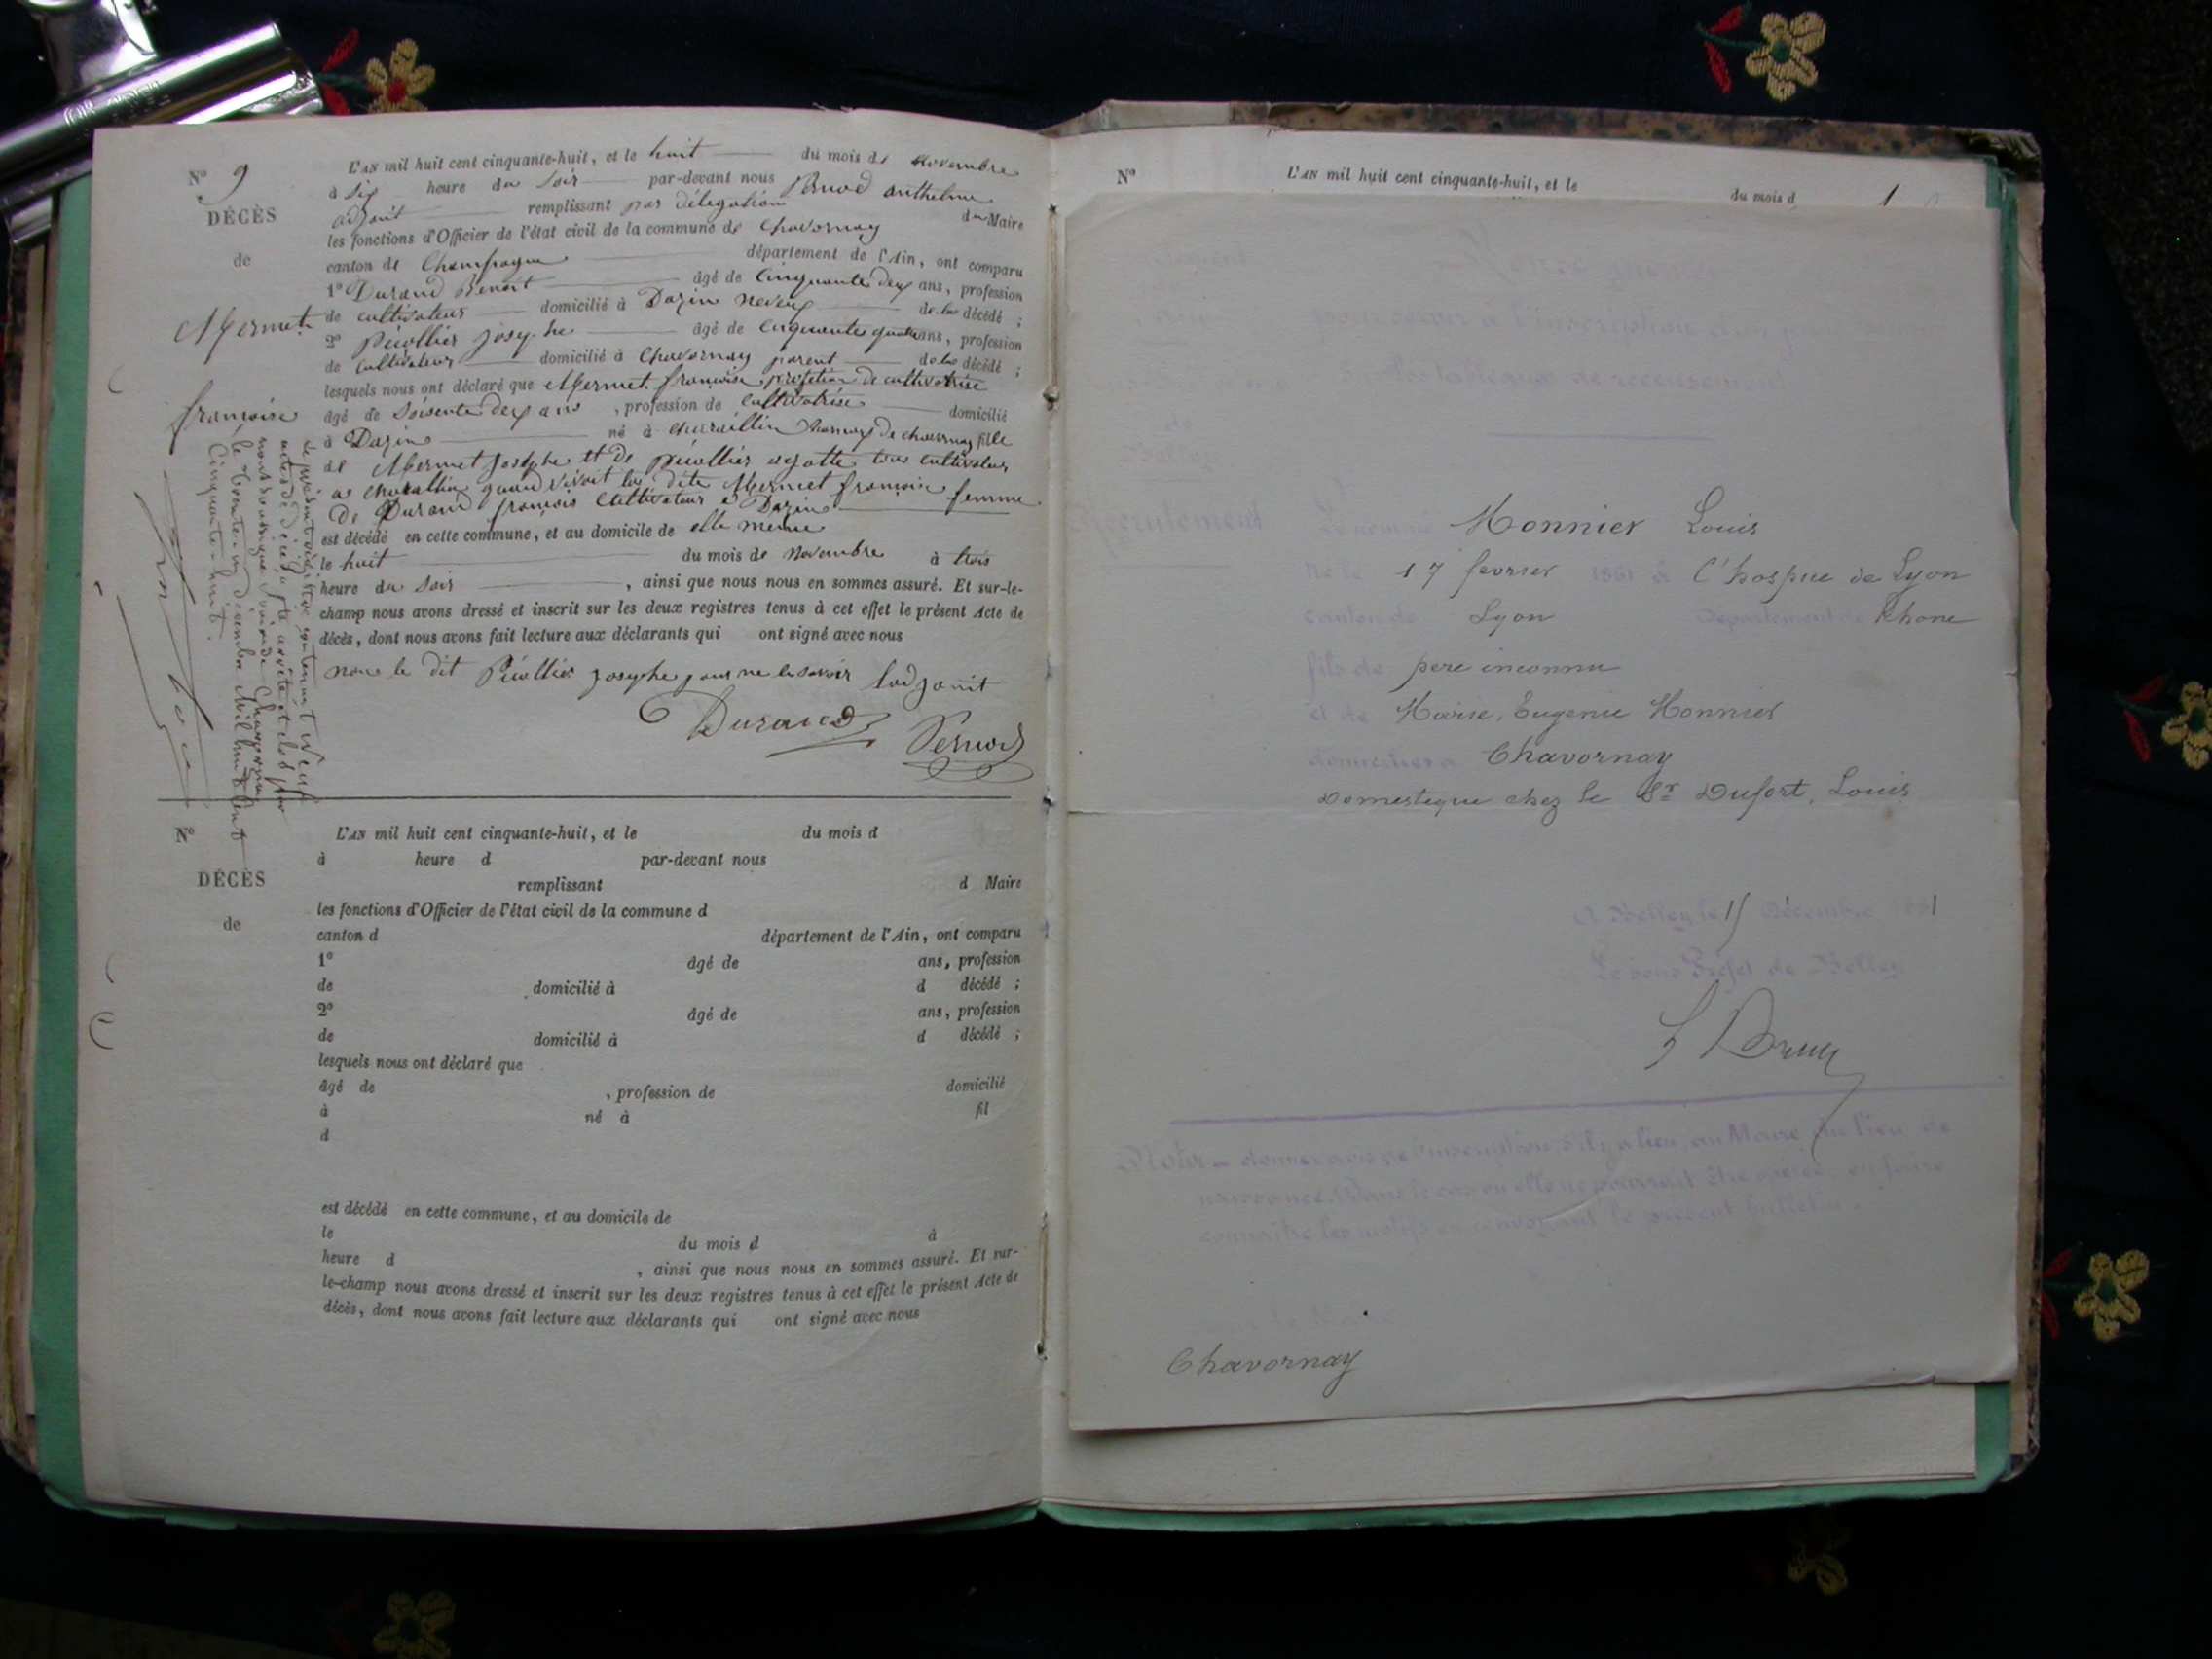 N° 9
DÉCÈS
de
Mermet
françoise
L'AN mil huit cent cinquante-huit, et le huit du mois de novembre
à six heure du soir par-devant nous Pernod anthelme
adjoint remplissant par délégation du Maire
les fonctions d'Officier de l'état civil de la commune de Chavornay
canton de Champagne département de l'Ain, ont comparu
1° Durand Benoit âgé de cinquante deux ans, profession
de cultivateur domicilié à Dazin neveux de la décédé ;
2° Picollier josephe âgé de cinquante quatre ans, profession
de cultivateur domicilié à Chavornay parent de la décédé ;
lesquels nous ont déclaré que Mermet françoise profession de cultivatrise
âgé de soisente deux ans, profession de cultivatrise domicilié
à Dazin né à de chavornay fille
de Mermet josephe et de picollier tous cultivateur
a quand vivoit la dite Mermet françoise femme
De Durand françois cultivateur a Dazin
est décédé en cette commune, et au domicile de elle meme
le huit du mois de novembre à trois
heure du soir, ainsi que nous nous en sommes assuré. Et sur-le-
champ nous avons dressé et inscrit sur les deux registres tenus à cet effet le présent Acte de
décès, dont nous avons fait lecture aux déclarants qui ont signé avec nous
non le dit Picollier josephe pour ne le savoir l'adjoint
Durand Pernod
Le présent registre contenant neuf
actes de décès a été arrêté et clos par
nous soussigné maire de Chavornay
le trente un décembre mil huit cent
cinquante-huit.
N°
DÉCÈS
de
L'AN mil huit cent cinquante-huit, et le du mois d
à heure d par-devant nous
remplissant d Maire
les fonctions d'Officier de l'état civil de la commune d
canton d département de l'Ain, ont comparu
1° âgé de ans, profession
de domicilié à d décédé ;
2° âgé de ans, profession
de domicilié à d décédé ;
lesquels nous ont déclaré que
âgé de , profession de domicilié
à né à fil
d
est décédé en cette commune, et au domicile de
le du mois d à
heure d , ainsi que nous nous en sommes assuré. Et sur-
le-champ nous avons dressé et inscrit sur les deux registres tenus à cet effet le présent Acte de
décès, dont nous avons fait lecture aux déclarants qui ont signé avec nous
N° L'AN mil huit cent cinquante-huit, et le du mois d
pour servir à l'inscription d'un
tableaux de recensement
de
Belley
Recrutement
Le nommé Monnier Louis
Né le 17 fevrier 1861 à l'hospice de Lyon
canton de Lyon Département de Rhone
fils de pere inconnu
et de Marie, Eugenie Monnier
domicilié à Chavornay
Domestique chez le Sr Dufort, Louis
A Belley, le 15 Décembre 1881
Le sous Préfet de Belley
Nota – donner avis de l'inscription, s'il y a lieu, au Maire du lieu de
naissance. Dans le cas où elle ne pourrait être opérée, en faire
connaître les motifs en renvoyant le présent bulletin.
Chavornay